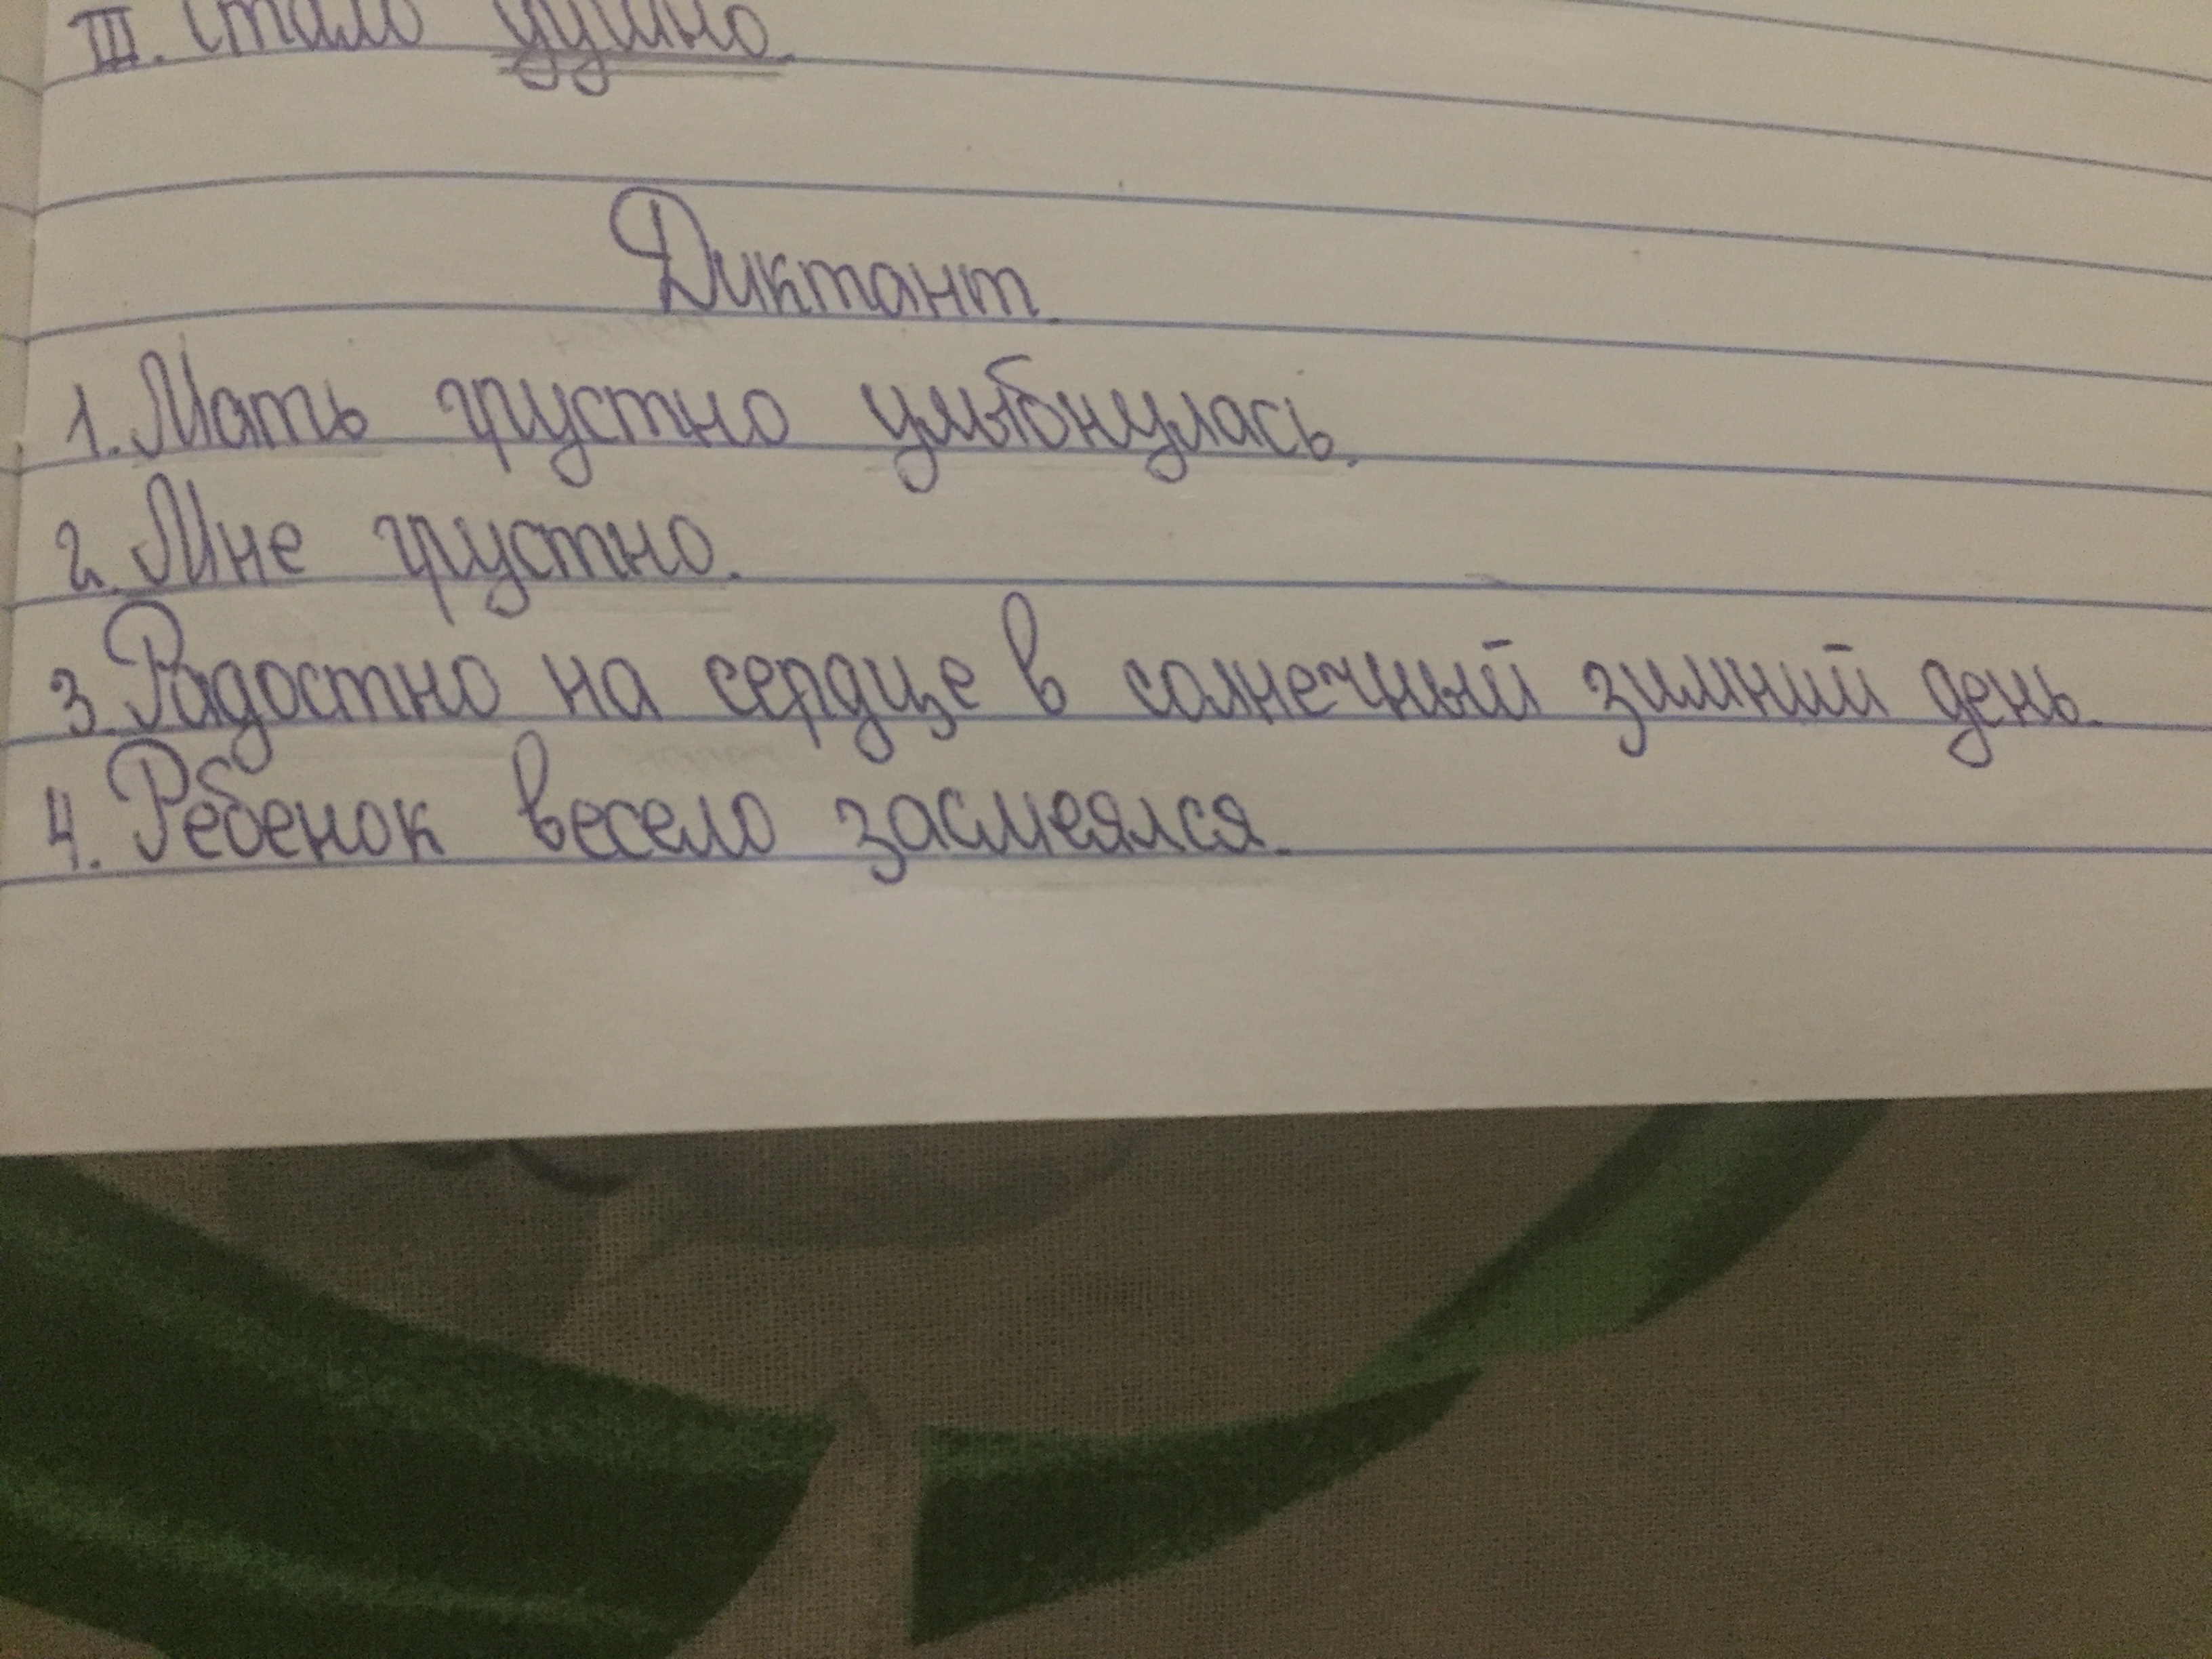 III. Стало душно.
Диктант.
1. Мать грустно улыбнулась.
2. Мне грустно.
3. Радостно на сердце в солнечный зимний день.
4. Ребенок весело засмеялся.